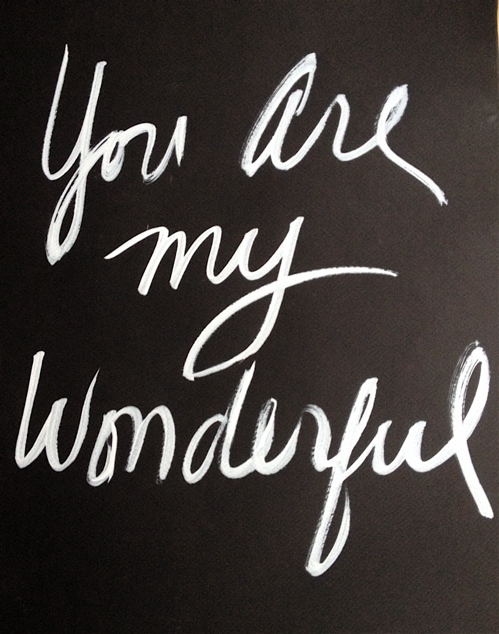 You Are
my
Wonderful